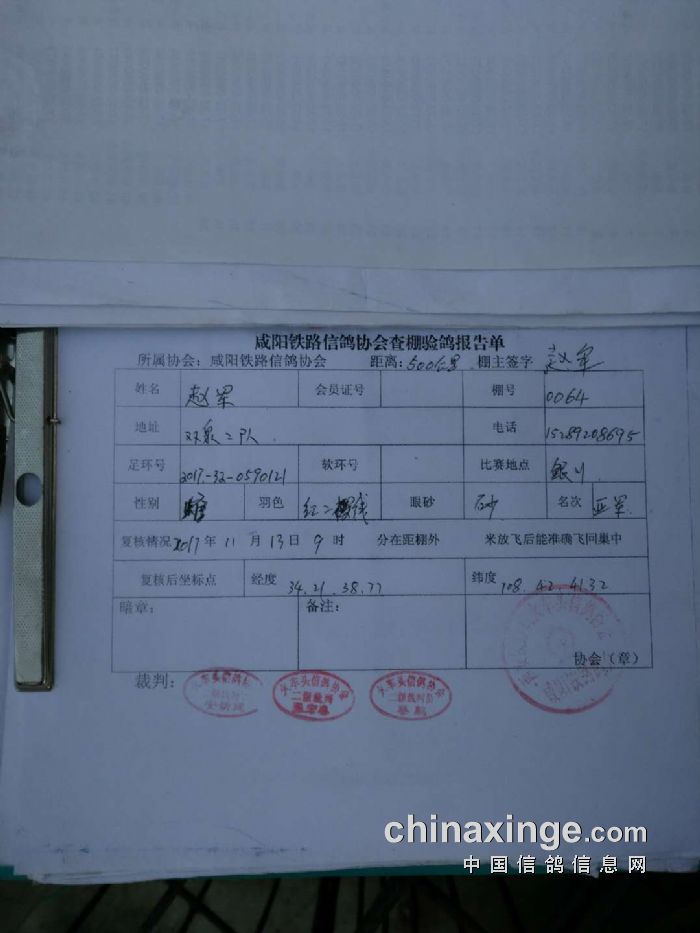 咸阳铁路信鸽协会查棚验鸽报告单
所属协会：咸阳铁路信鸽协会 距离：500公里 棚主签字 赵军
姓名 赵军 会员证号 棚号 0064
地址 双泉二队 电话 15289208695
足环号 2017-32-0590121 软环号 比赛地点 银川
性别 羽色 红二 线 眼砂 砂 名次 亚军
复核情况 2017年 11 月 13 日 9 时 分在距棚外 米放飞后能准确飞回巢中
复核后坐标点 经度 34.21.38.77 纬度 108.42.41.32
暗章： 备注：
协会（章）
裁判： 火车头信鸽协会 火车头信鸽协会 火车头信鸽协会
二级裁判
chinaxinge.com
中国信鸽信息网